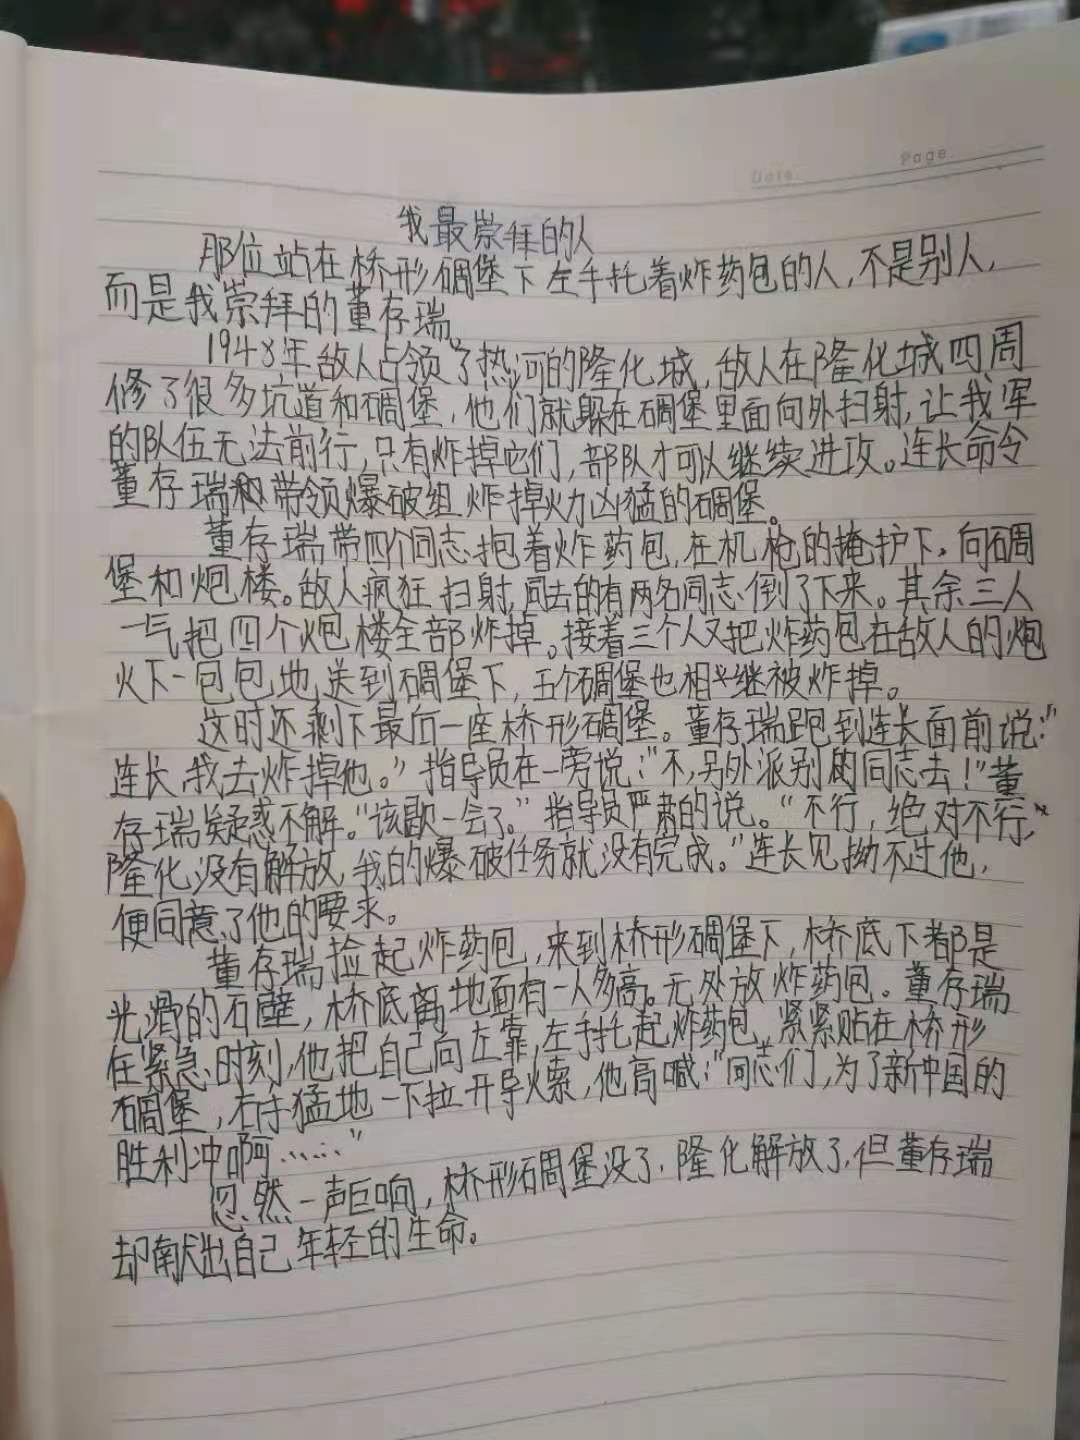 Page.
Date.
我最崇拜的人
那位站在桥形碉堡下左手托着炸药包的人,不是别人,
而是我崇拜的董存瑞。
1948年敌人占领了热河的隆化城,敌人在隆化城四周
修了很多坑道和碉堡,他们就躲在碉堡里面向外扫射,让我军
的队伍无法前行,只有炸掉它们,部队才可以继续进攻。连长命令
董存瑞和带领爆破组炸掉火力凶猛的碉堡。
董存瑞带四个同志抱着炸药包,在机枪的掩护下,向碉
堡和炮楼。敌人疯狂扫射,同去的有两名同志倒了下来。其余三人
一气把四个炮楼全部炸掉。接着三个人又把炸药包在敌人的炮
火下一包包地送到碉堡下,五个碉堡也相继被炸掉。
这时还剩下最后一座桥形碉堡。董存瑞跑到连长面前说:"
连长,我去炸掉他。"指导员在一旁说:"不,另外派别的同志去!"董
存瑞疑惑不解。"该歇一会了。"指导员严肃的说。"不行,绝对不行,"
隆化没有解放,我的爆破任务就没有完成。"连长见拗不过他,
便同意了他的要求。
董存瑞捡起炸药包,来到桥形碉堡下,桥底下都是
光滑的石壁,桥底离地面有一人多高。无处放炸药包。董存瑞
在紧急时刻,他把自己向左靠,左手托起炸药包,紧紧贴在桥形
碉堡,右手猛地一下拉开导火索,他高喊:"同志们,为了新中国的
胜利冲啊……"
忽然一声巨响,桥形碉堡没了,隆化解放了,但董存瑞
却献出自己年轻的生命。